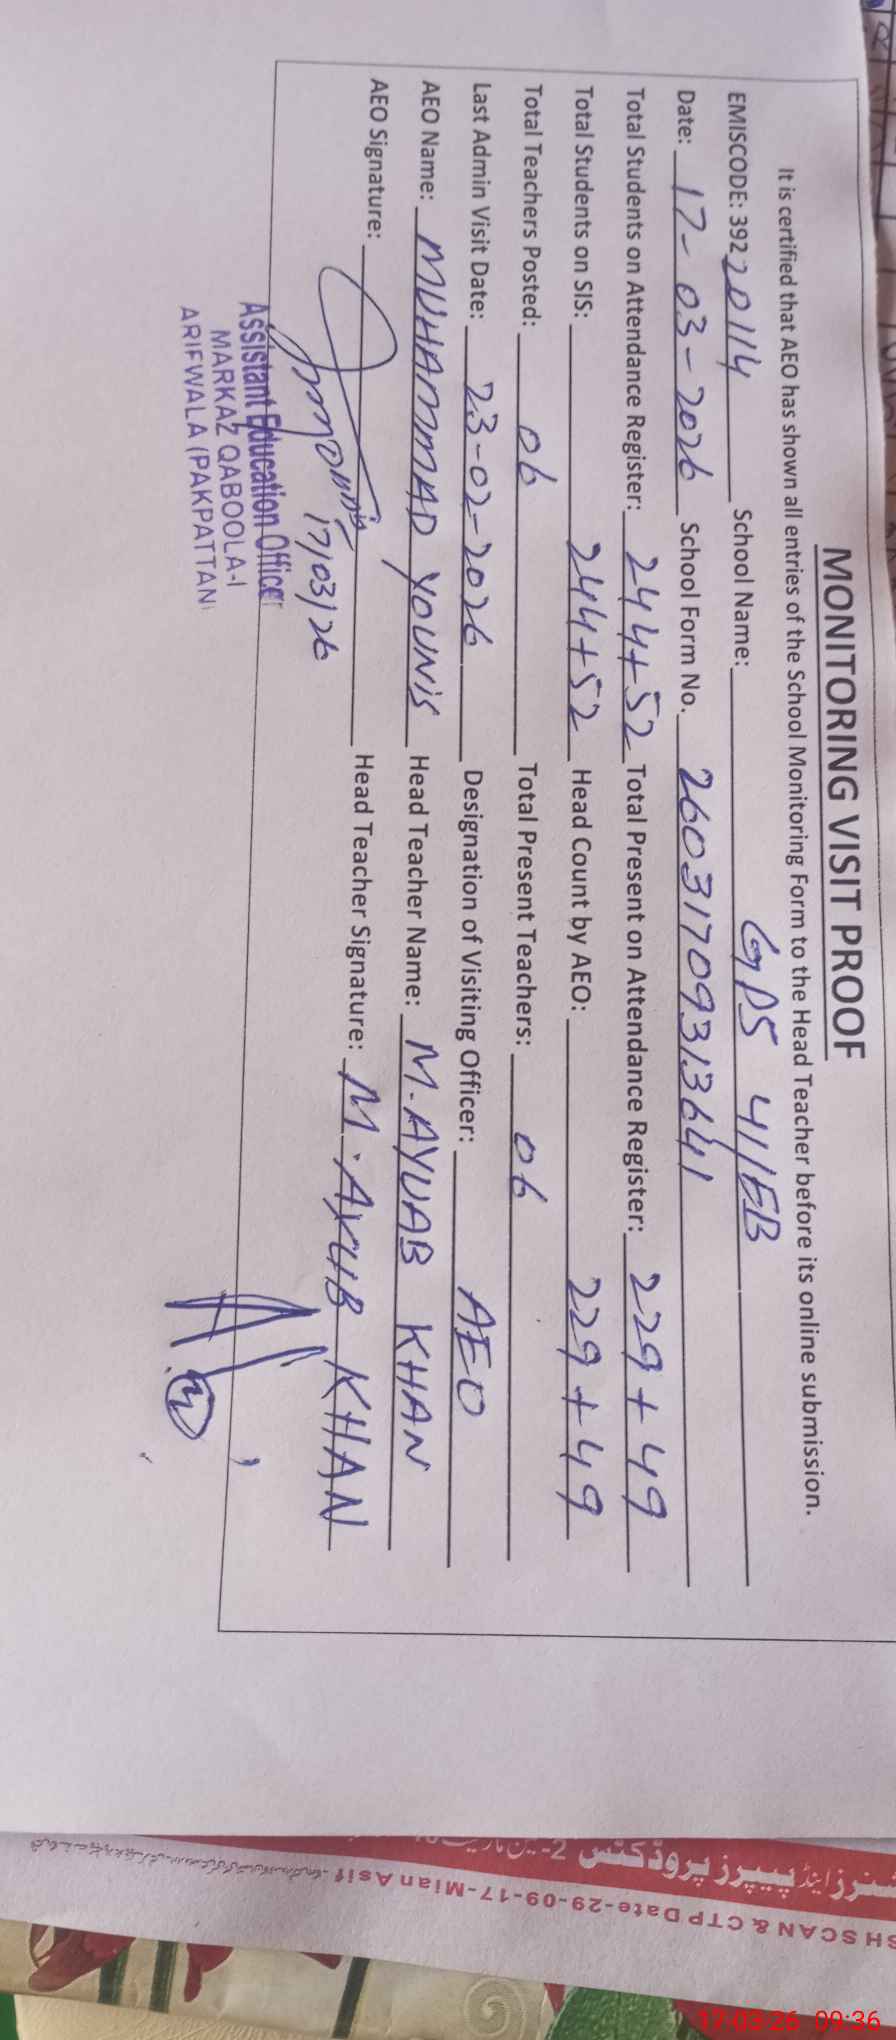 MONITORING VISIT PROOF
It is certified that AEO has shown all entries of the School Monitoring Form to the Head Teacher before its online submission.
EMISCODE: 39220114 School Name: GPS 41/EB
Date: 17-03-2026 School Form No. 26031709313641
Total Students on Attendance Register: 244+52 Total Present on Attendance Register: 229+49
Total Students on SIS: 244+52 Head Count by AEO: 229+49
Total Teachers Posted: 06 Total Present Teachers: 06
Last Admin Visit Date: 23-02-2026 Designation of Visiting Officer: AEO
AEO Name: MUHAMMAD YOUNIS Head Teacher Name: M.AYUAB KHAN
AEO Signature: Head Teacher Signature: M.AYUB KHAN
17/03/26
Assistant Education Officer
MARKAZ QABOOLA-I
ARIFWALA (PAKPATTAN)
اینڈ پیپرز پروڈکٹس
SCAN & CTP Date-29-09-17-Mian Asif
17-03-26 09:36